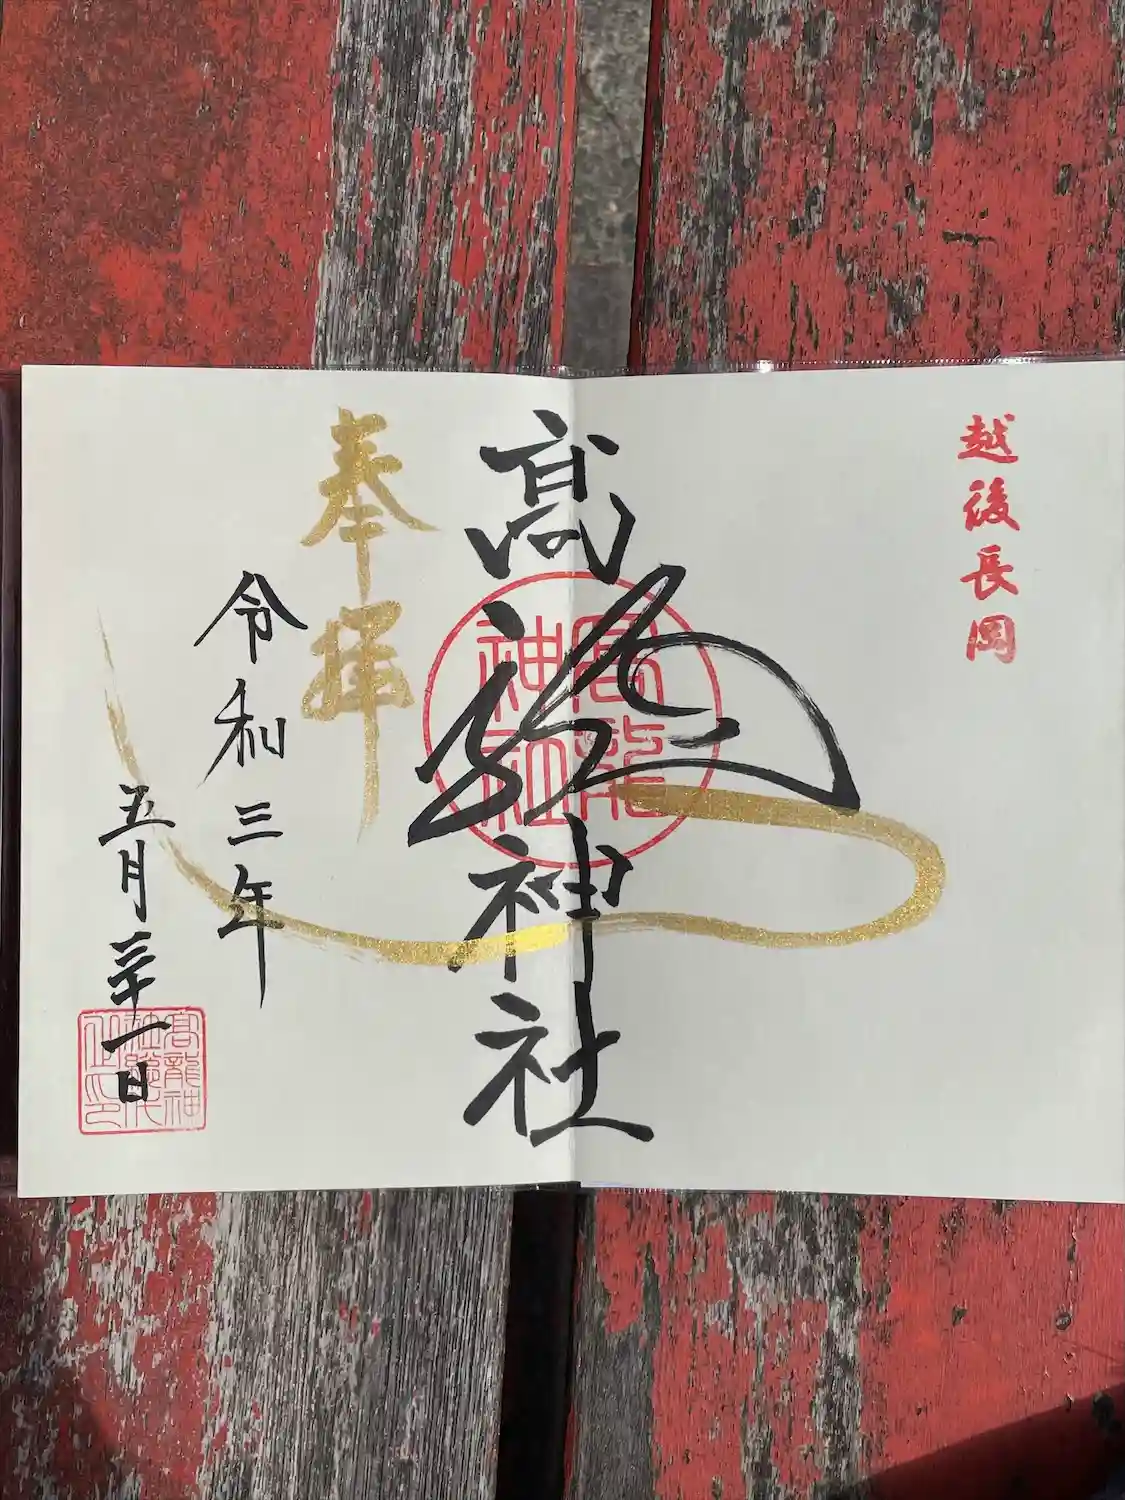 越後長岡
髙龍神社
高龍
神社
奉拝
令和三年
五月三十一日
高龍神
社総代
之印